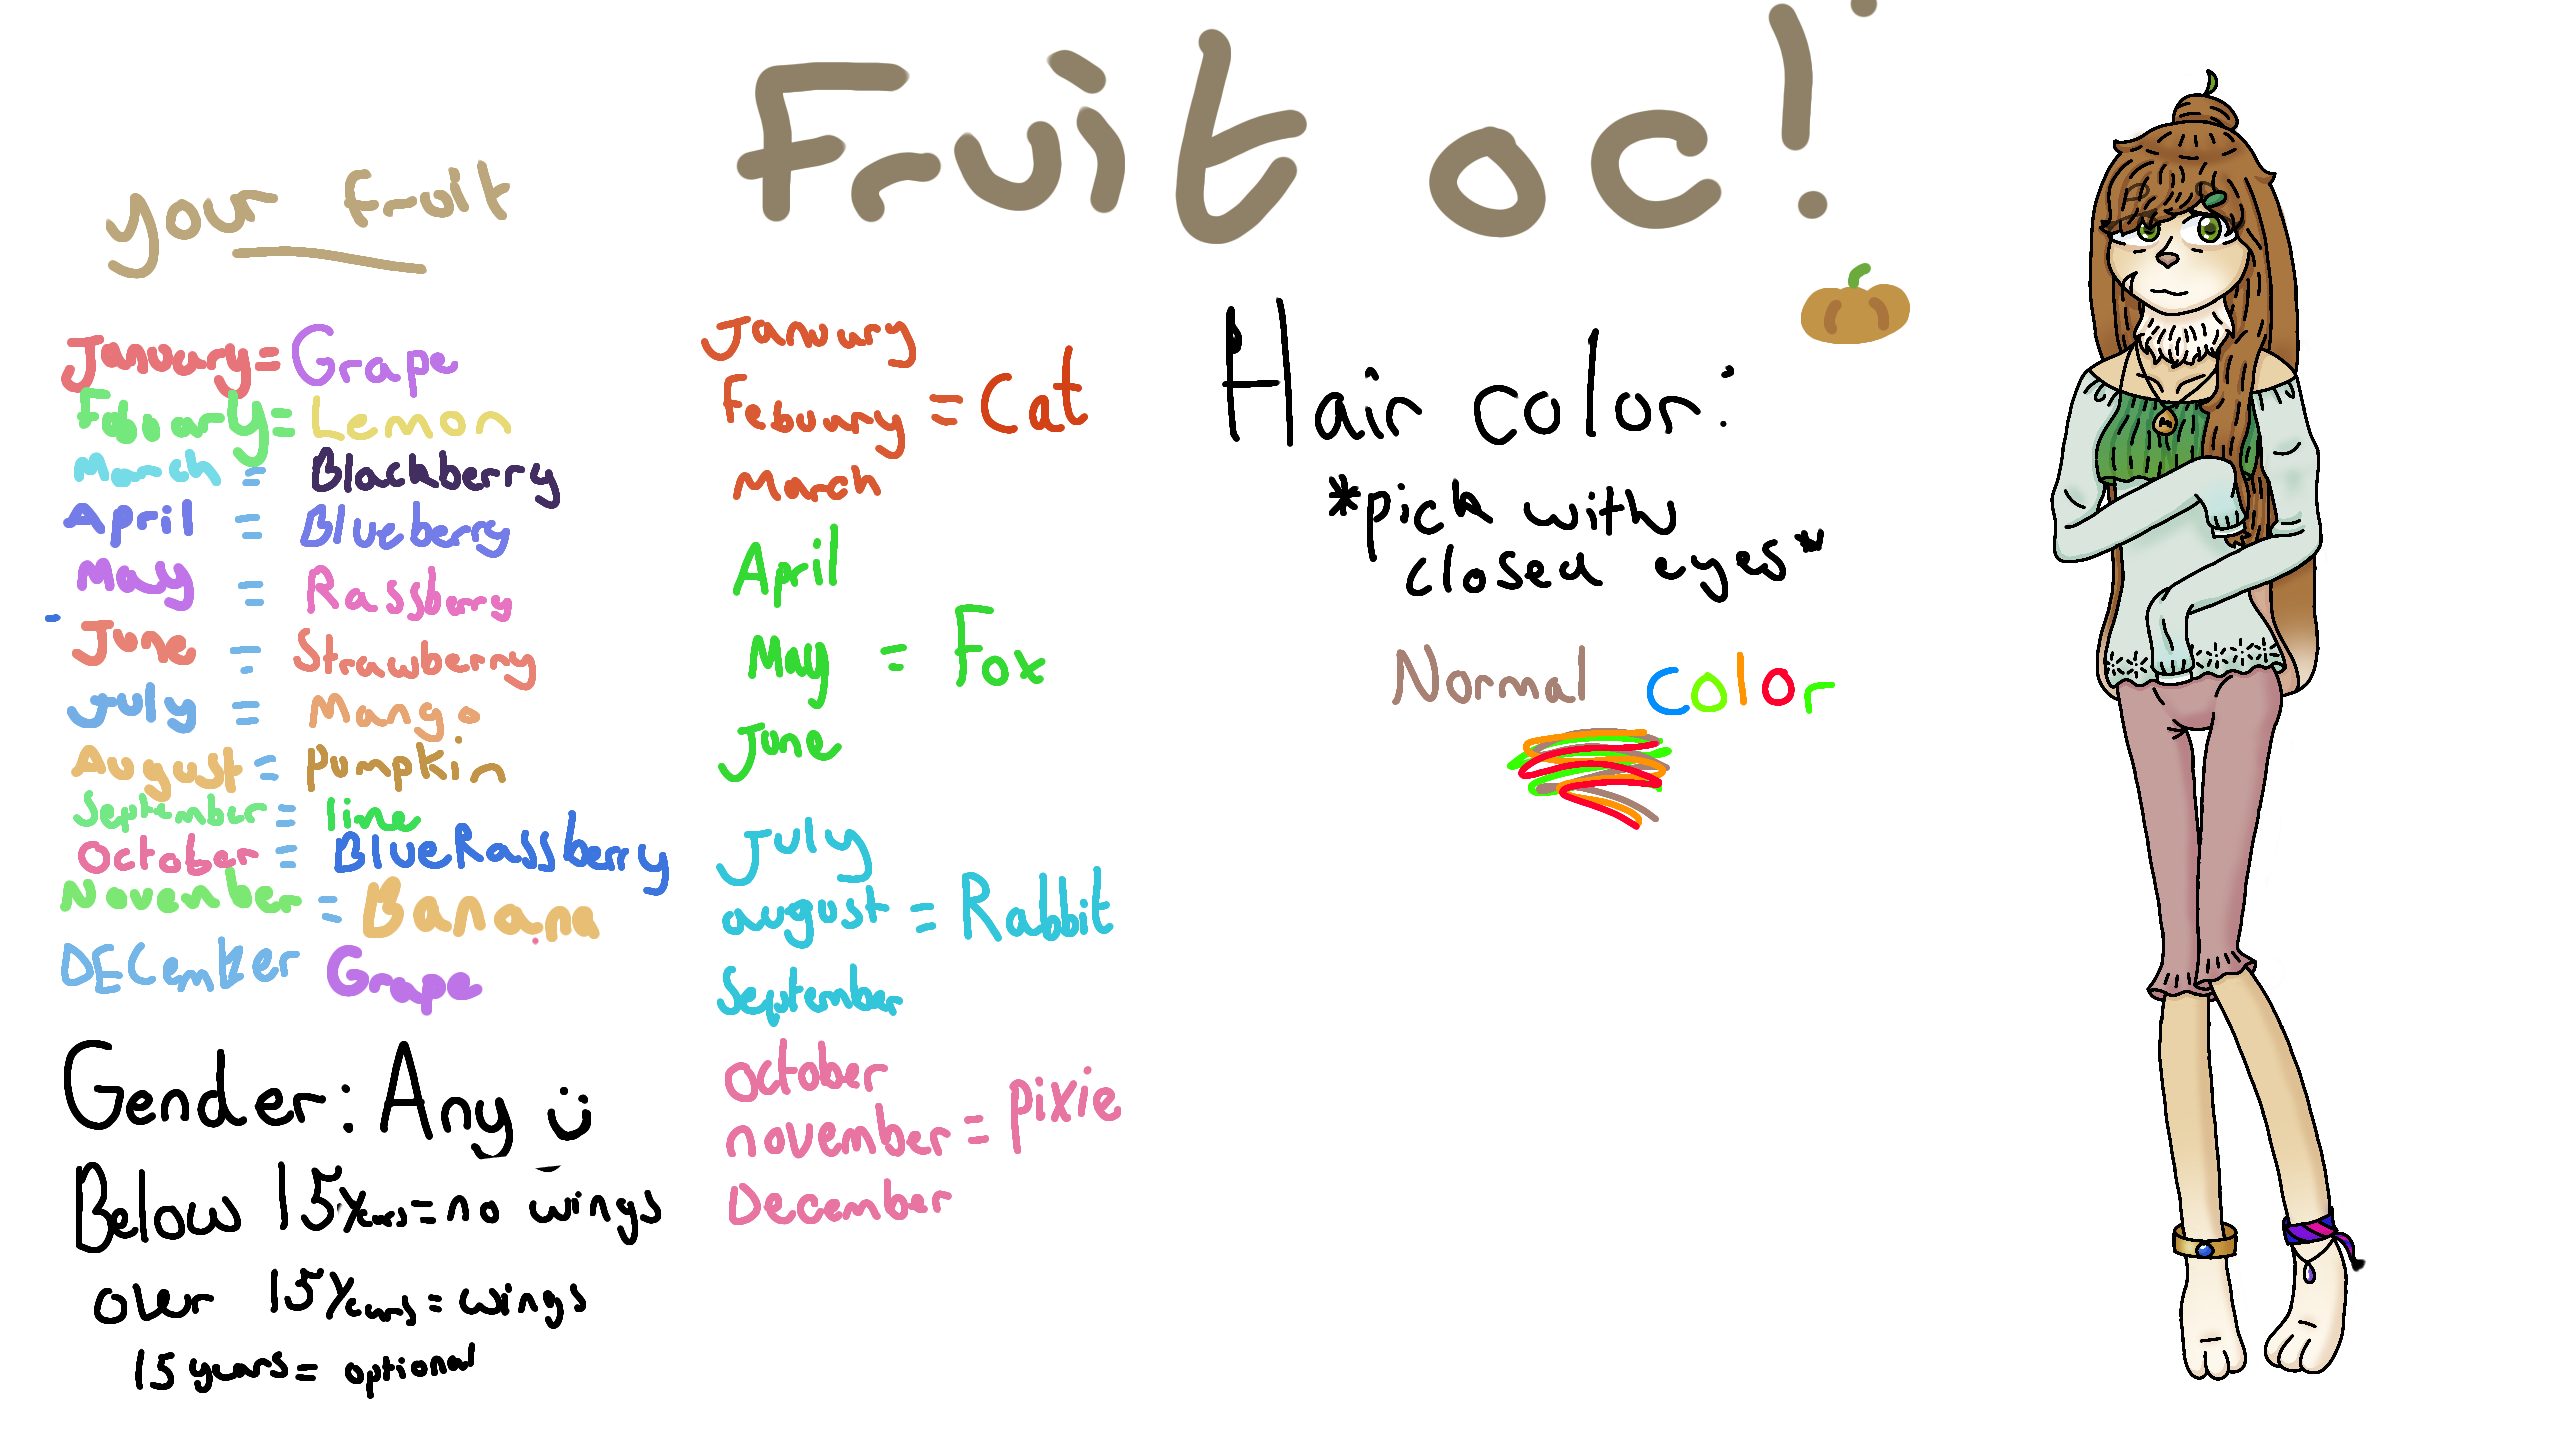 Fruit oc!
your fruit
January= Grape
Febuary= Lemon
March = Blackberry
April = Blueberry
May = Rassberry
June = Strawberry
July = Mango
August= Pumpkin
September= line
October = BlueRassberry
November = Banana
DECember Grape
Gender: Any
Below 15years=no wings
over 15years= wings
15 years= optional
Janury
Febuary = Cat
March
April
May = Fox
June
July
august = Rabbit
September
october
november = pixie
December
Hair color:
*pick with
closed eyes*
Normal color